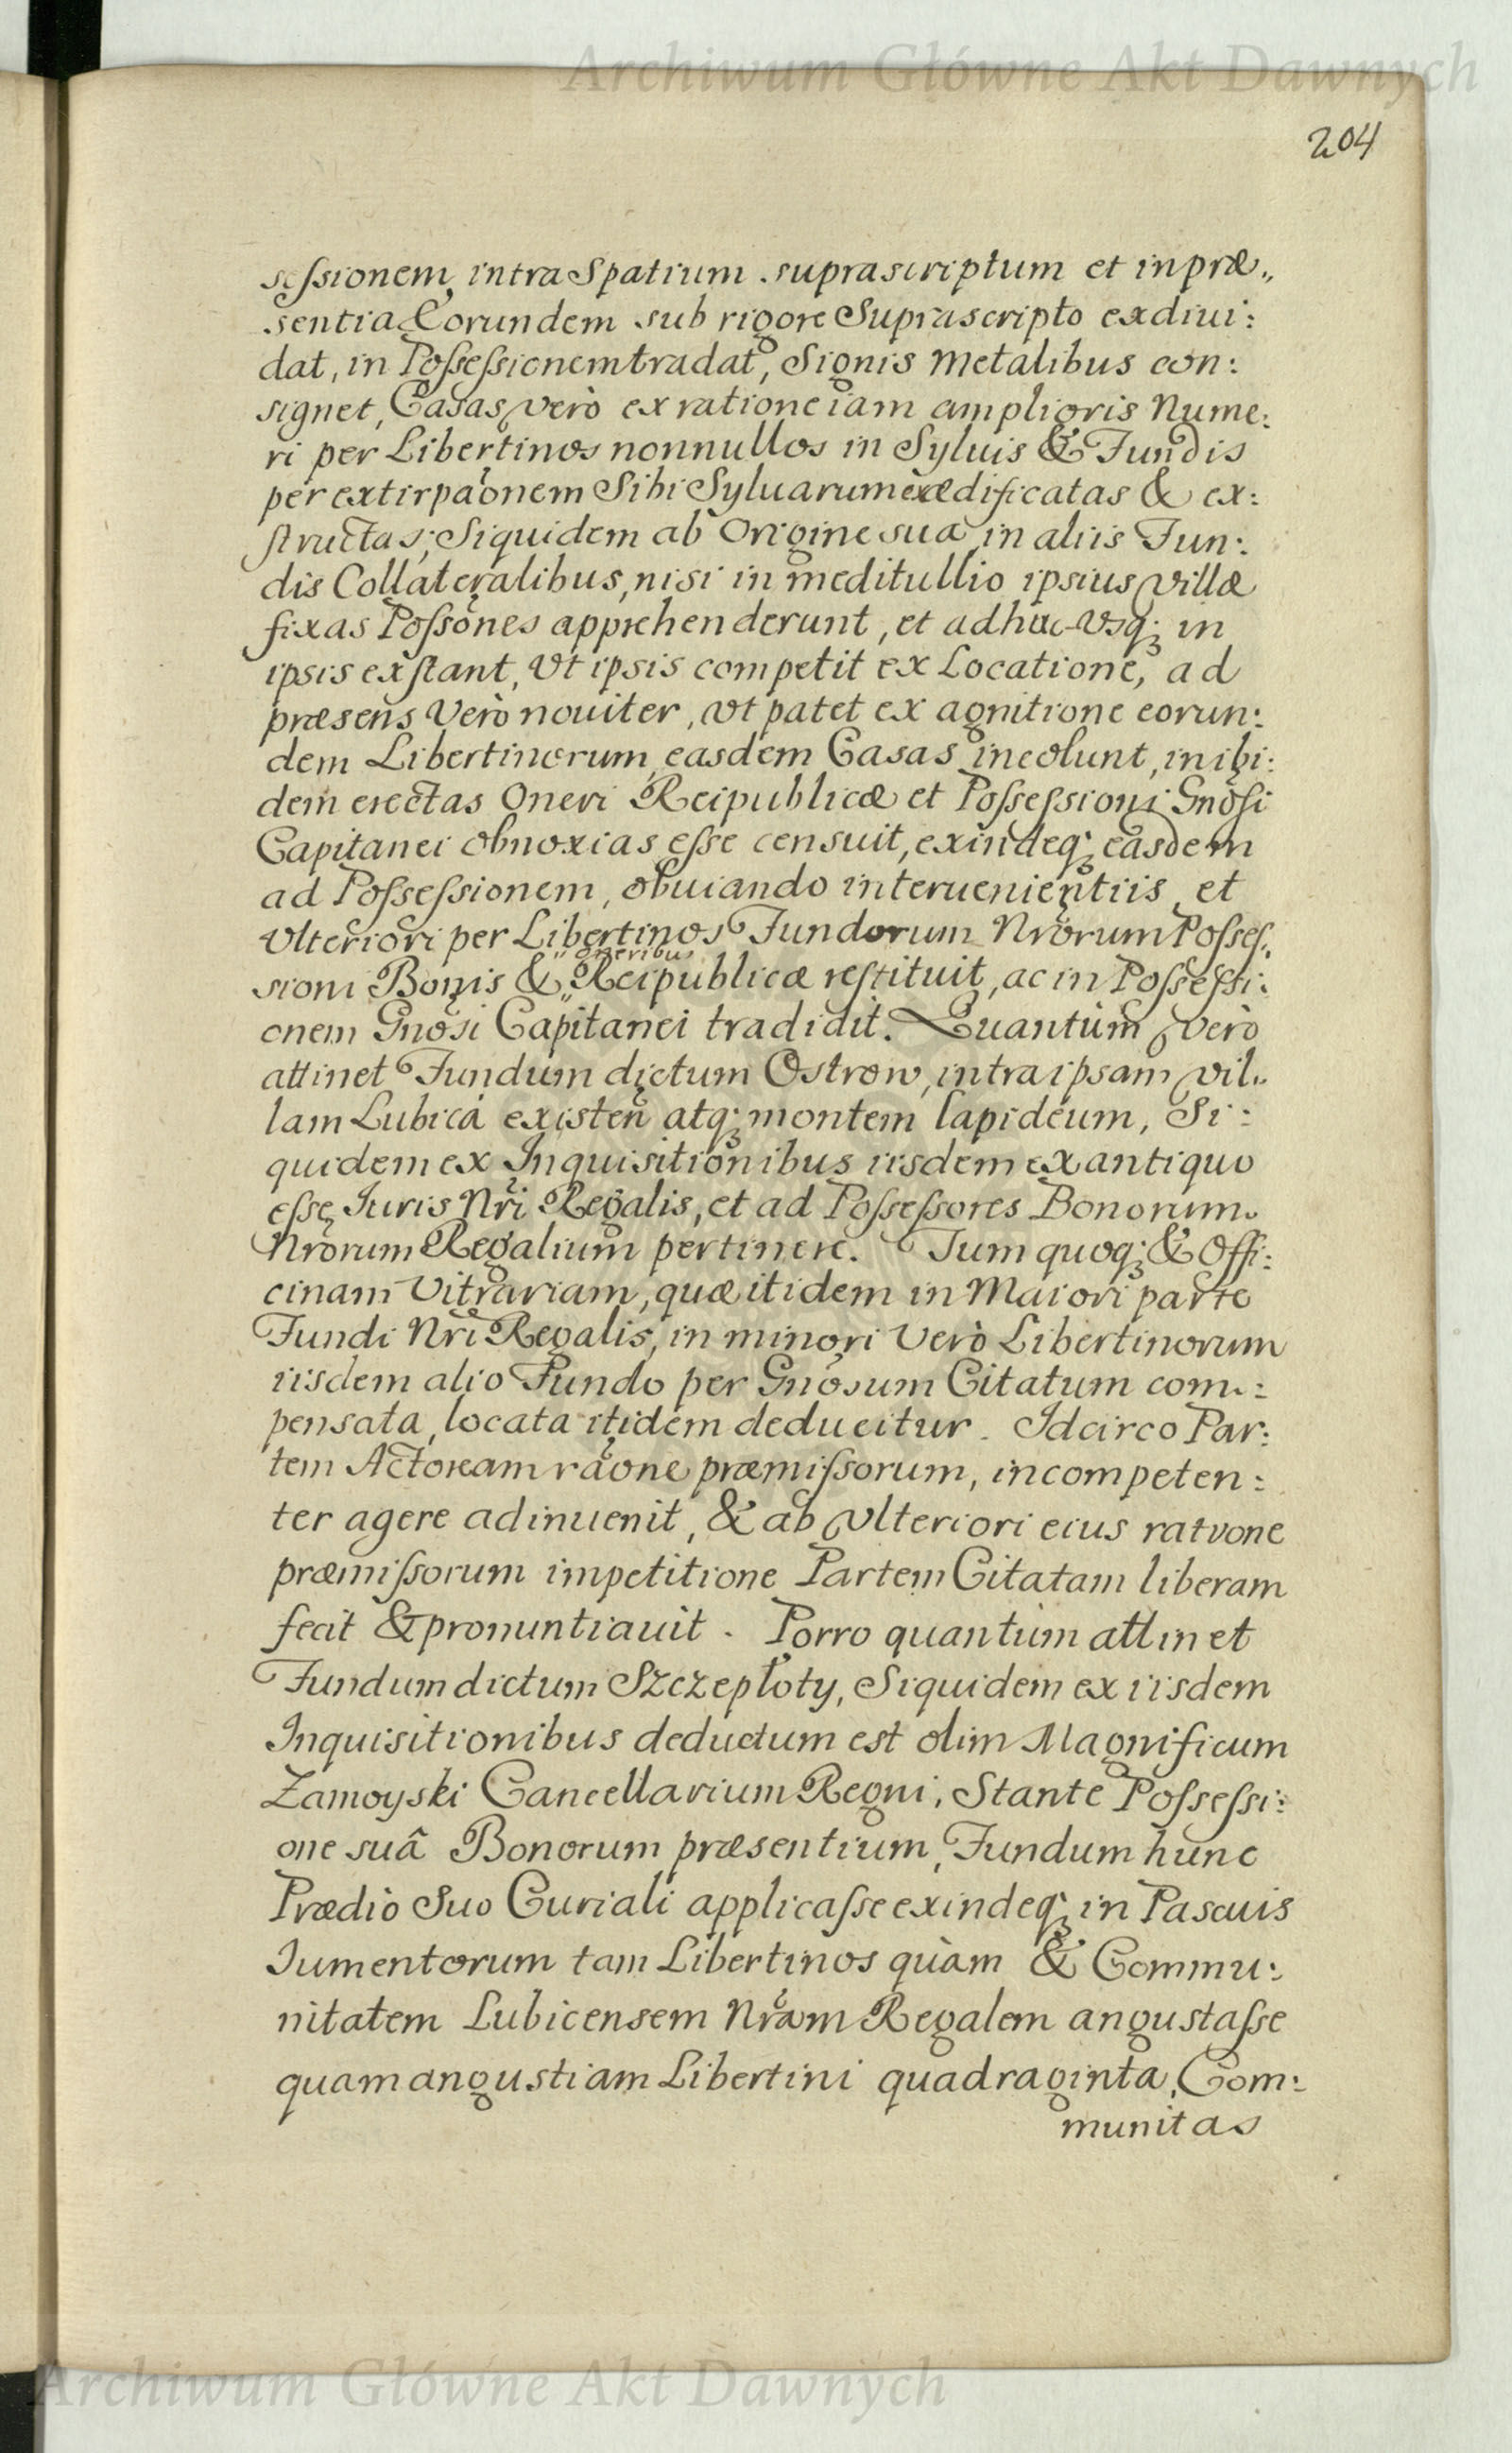 Archiwum Główne Akt Dawnych
204
seſsionem, intra Spatium suprascriptum et in præ„
sentia Eorundem sub rigore Suprascripto exdiui:
dat, in Poſseſsionem tradat, Signis Metalibus con:
signet, Casas verò ex ratione iam amplioris Nume:
ri per Libertinos nonnullos in Syluis & Fundis
per extirpaõnem Sibi Syluarum exædificatas & ex:
ſtructas; Siquidem ab Origine sua in aliis Fun:
dis Collateralibus, nisi in meditullio ipsius Villæ
fixas Poſsões apprehenderunt, et adhuc Vsq; in
ipsis exſtant, Vt ipsis competit ex Locatione, ad
præsens Verò nouiter, vt patet ex agnitione eorun:
dem Libertinorum, easdem Casas incolunt, inibi:
dem erectas Oneri Reipublicæ et Poſseſsioni Gnõsi
Capitanei obnoxias eſse censuit, exindeq; easdem
ad Poſseſsionem, obuiando interuenientiis et
Vlteriori per Libertinos Fundorum Nrõrum Poſseſ:
oneribus
sioni Bonis & „ Reipublicæ reſtituit, ac in Poſseſsi:
onem Gnõsi Capitanei tradidit. Quantùm verò
attinet Fundum dictum Ostrow, intra ipsam vil„
lam Lubica existeñ atq; montem lapideum, Si:
quidem ex Inquisitionibus iisdem ex antiquo
eſse Iuris Nrĩ Regalis, et ad Poſseſsores Bonorum
Nrõrum Regalium pertinere. Tum quoq; & Offi:
cinam Vitrariam, quæ itidem in Maiori parte
Fundi Nrĩ Regalis, in minori Verò Libertinorum
iisdem alio Fundo per Gnõsum Citatum com:
pensata, locata itidem deducitur. Idcirco Par:
tem Actoream rãone præmiſsorum, incompeten:
ter agere adinuenit, & ab Vlteriori eius ratione
præmiſsorum impetitione Partem Citatam liberam
fecit & pronuntiauit. Porro quantum attinet
Fundum dictum Szczepłoty, Siquidem ex iisdem
Inquisitionibus deductum est olim Magnificum
Zamoyski Cancellarium Regni, Stante Poſseſsi:
one suâ Bonorum præsentium, Fundum hunc
Prædio Suo Curiali applicaſse exindeq; in Pascuis
Iumentorum tam Libertinos quàm & Commu:
nitatem Lubicensem Nrãm Regalem angustaſse
quam angustiam Libertini quadraginta, Com:
munitas
Archiwum Główne Akt Dawnych